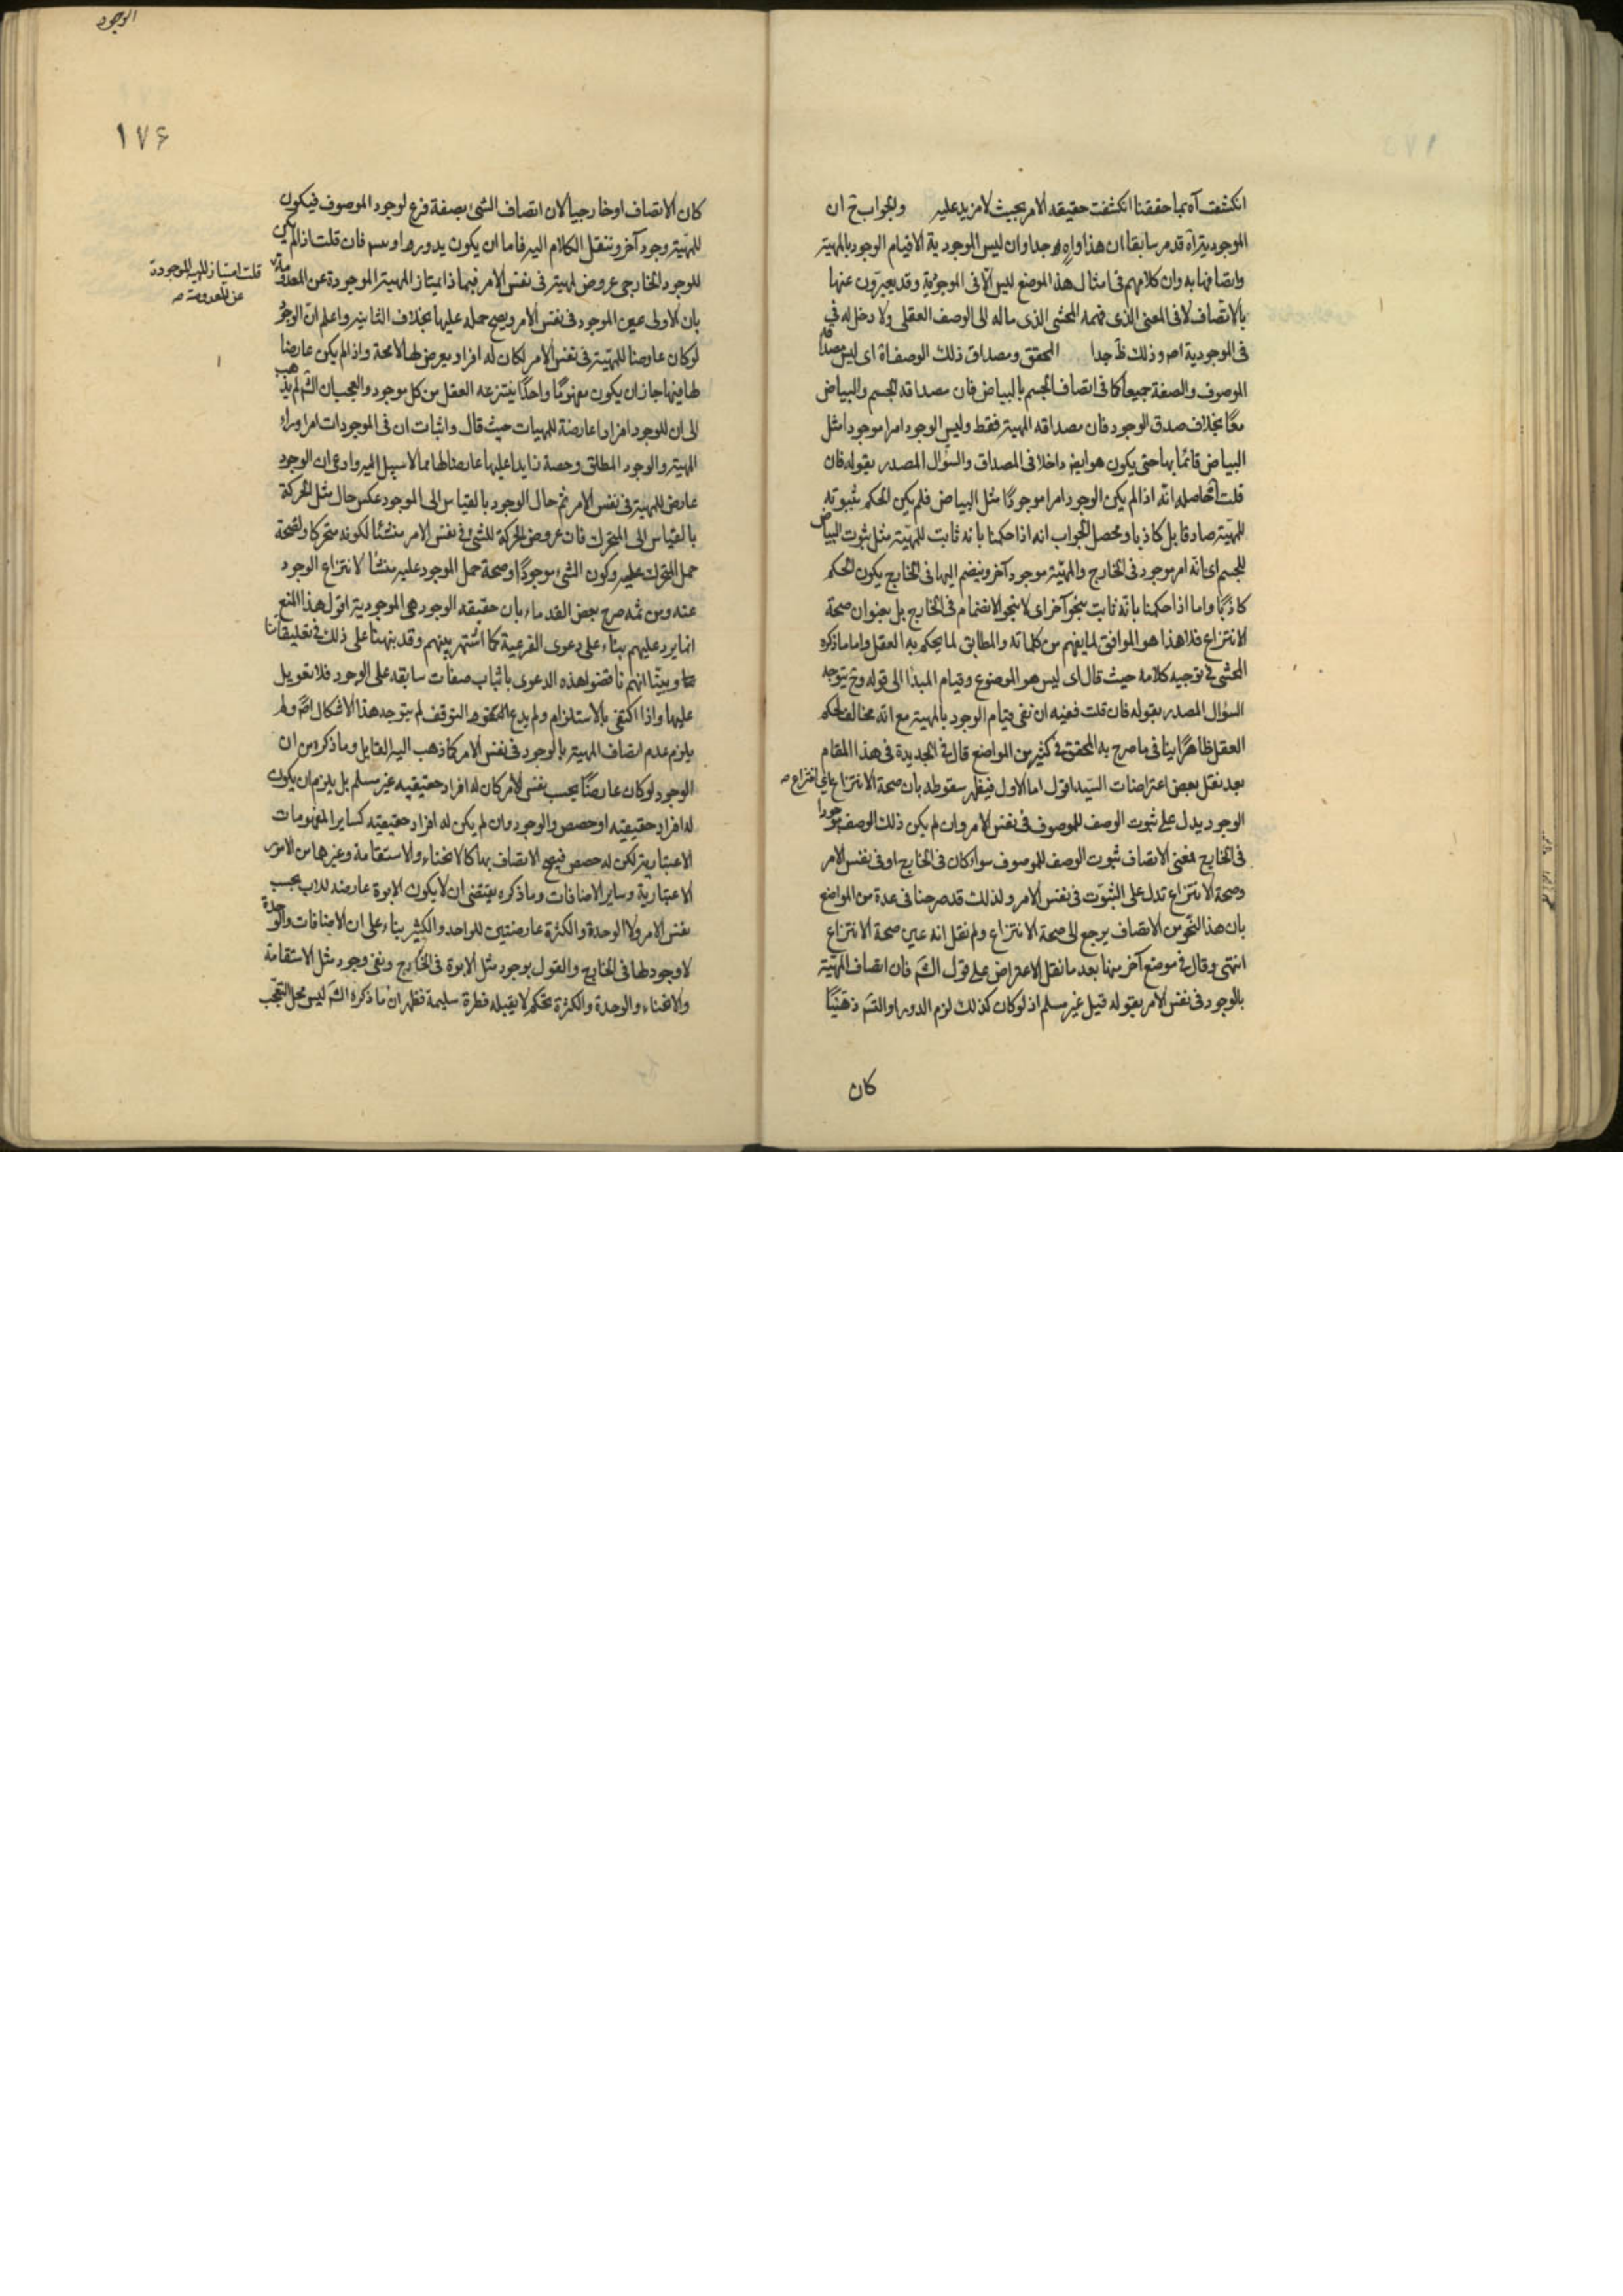 انكشفت آه بما حققنا انكشفت حقيقه الامر بحيث لا مزيد عليه والجواب ح ان
الموجودية آه قد مر سابقا ان هذا واه جدا وان ليس الموجودية الا قيام الوجود بالمهية
واتصافها به وان كلامهم فى امثال هذا الموضع ليس الا فى الموجودية وقد يعبرون عنها
بالاتصاف لا فى المعنى الذى فهمه المحشى الذى ماله الى الوصف العقلى ولا دخل له فى
فى الموجودية اصه وذلك ظ جدا المحقق ومصداق ذلك الوصف آه اى ليس مصداقه
الموصوف والصفة جميعا كما فى اتصاف الجسم بالبياض فان مصداقه الجسم والبياض
معا بخلاف صدق الوجود فان مصداقه المهية فقط وليس الوجود امرا موجودا مثل
البياض قائما بها حتى يكون هو ايض داخلا فى المصداق والسؤال المصدر بقوله فان
قلت آه حاصله انه اذا لم يكن الوجود امرا موجودا مثل البياض فلم يكن الحكم بثبوته
للمهية صادقا بل كاذبا ومحصل الجواب انه اذا حكمنا بانه ثابت للمهية مثل ثبوت البياض
للجسم اى انه امر موجود فى الخارج والمهية موجود آخر وينضم اليها فى الخارج يكون الحكم
كاذبا واما اذا حكمنا بانه ثابت بنحو آخر اى لا بنحو الانضمام فى الخارج بل بعنوان صحة
الانتزاع فلا هذا هو الموافق لما يفهم من كلماته والمطابق لما يحكم به العقل واما ما ذكره
المحشى فى توجيه كلامه حيث قال اى ليس هو الموضوع وقيام المبدا الى قوله وح يتوجه
السؤال المصدر بقوله فان قلت ففيه ان نفى قيام الوجود بالمهية مع انه مخالف لحكم
العقل ظاهرا ينافى ما صرح به المحقق فى كثير من المواضع قال فى الجديدة فى هذا المقام
بعد نقل بعض اعتراضات السيد اقول اما الاول فيظهر سقوطه بان صحة الانتزاع
الوجود يدل على ثبوت الوصف للموصوف فى نفس الامر وان لم يكن ذلك الوصف موجودا
فى الخارج فمعنى الاتصاف ثبوت الوصف للموصوف سواء كان فى الخارج او فى نفس الامر
وصحة الانتزاع تدل على الثبوت فى نفس الامر ولذلك قد صرحنا فى عدة من المواضع
بان هذا النحو من الاتصاف يرجع الى صحة الانتزاع ولم نقل انه عين صحة الانتزاع
انتهى وقال فى موضع آخر منها بعد ما نقل الاعتراض على قول الش فان اتصاف المهية
بالوجود فى نفس الامر بقوله قيل غير مسلم اذ لو كان كذلك لزم الدور او التس ذهنيا
كان
الوجود
١٧۶
كان الاتصاف او خارجيا لان اتصاف الشئ بصفة فرع لوجود الموصوف فيكون
للمهية وجود آخر وننقل الكلام اليه فاما ان يكون يدور او يتس فان قلت اذا لم يكن
للوجود الخارجى عروض لمهية فى نفس الامر فبماذا يمتاز المهية الموجودة عن المعدومة
قلت امتياز المهية الموجودة
عن المعدومة صه
بان الاولى عين الموجود فى نفس الامر ويصح حمله عليها بخلاف الثانية واعلم ان الوجود
لو كان عارضا للمهية فى نفس الامر لكان له افراد يعرض لها لا محة واذا لم يكن عارضا
لها فيها جاز ان يكون مفهوما واحدا ينتزعه العقل من كل موجود والعجب ان الش لم يذهب
الى ان للوجود افرادا عارضة للمهيات حيث قال واثبات ان فى الموجودات امرا وراء
المهية والوجود المطلق وحصة زايدا عليها عارضا لها مما لا سبيل اليه وادعى ان الوجود
عارض للمهية فى نفس الامر ثم حال الوجود بالقياس الى الموجود عكس حال مثل الحركة
بالقياس الى المتحرك فان عروض الحركة للشئ فى نفس الامر منشئا لكونه متحركا ولصحة
حمل المتحرك عليه وكون الشئ موجودا وصحة حمل الموجود عليه منشأ لانتزاع الوجود
عنه ومن ثمه صرح بعض القدماء بان حقيقه الوجود هى الموجودية اقول هذا المنع
انما يرد عليهم بناء على دعوى الفرعية كما اشتهر بينهم وقد نبهنا على ذلك فى تعليقاتنا
وبينا انهم ناقضوا هذه الدعوى باثبات صفات سابقه على الوجود فلا تعويل
عليها واذا اكتفى بالاستلزام ولم يدع التوقف لم يتوجه هذا الاشكال اصم ولم
يلزم عدم اتصاف المهية بالوجود فى نفس الامر كما ذهب اليه القايل وما ذكره من ان
الوجود لو كان عارضا بحسب نفس الامر كان له افراد حقيقيه غير مسلم بل يلزم ان يكون
له افراد حقيقيه او حصص والوجود وان لم يكن له افراد حقيقيه كساير المفهومات
الاعتبارية لكن له حصص فيصح الاتصاف بها كالانحناء والاستقامة وغيرهما من الامور
الاعتبارية وساير الاضافات وما ذكره يقتضى ان لا يكون الابوة عارضه للاب بحسب
نفس الامر ولا الوحدة والكثرة عارضتين للواحد والكثير بناء على ان الاضافات والوحدة
لا وجود لها فى الخارج والقول بوجود مثل الابوة فى الخارج ونفى وجود مثل الاستقامة
والانحناء والوحدة والكثرة تحكم لا يقبله فطرة سليمة فظهر ان ما ذكره الش ليس محل التعجب